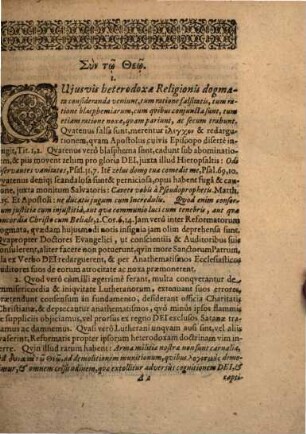 Σὺν τῷ Θεῷ.
I.
CUjusvis heterodoxæ Religionis dogma-
ta consideranda veniunt, tum ratione falsitatis, tum ra-
tione blasphemiarum, cum quibus conjuncta sunt, tum
etiam ratione noxæ, quam pariunt, ac secum trahunt.
Quatenus falsa sunt, merentur ἐλεγχον & redargu-
tionem, quam Apostolus cuivis Episcopo disertè in-
jungit, Tit. 1, 2. Quatenus verò blasphema sunt, cadunt sub abominatio-
nem, & pia movent zelum pro gloria DEI, juxta illud Hieropsaltis: Odi
observantes vanitates, Psal. 31, 7. It. zelus domus tuæ comedit me, Psal. 69, 10.
Quatenus deniq; scandalosa sunt & perniciosa, opus habent fugâ & cau-
tione, juxta monitum Salvatoris: Cavete vobis à Pseudoprophetis. Matth.
15. Et Apostoli: ne ducatis jugum cum Incredulis. Quod enim consor-
tium justitiæ cum injustitia, aut quæ communio luci cum tenebris, aut quæ
concordia Christi cum Belial, 2. Cor. 6, 14. Jam verò inter Reformatorum
dogmata, quædam hujusmodi notis insignia jam olim deprehensa sunt.
Quapropter Doctores Evangelici, ut conscientiis & Auditoribus suis
consulerent, aliter facere non potuerunt, quin more Sanctorum Patrum,
illa ex Verbo DEI redarguerent, & per Anathematismos Ecclesiasticos
auditores suos de eorum atrocitate ac noxa præmonerent.
2. Quod verò cùm illi ægerrimè ferant, multa conquerantur de
immansuetudine & iniquitate Lutheranorum, extenuant suos errores,
prætendunt consensum in fundamento, desiderant officia Charitatis
Christianæ, & deprecantur anathematismos, quo minus ipsos flammis
ac suppliciis objiciamus, vel prorsus ex regno DEI exclusos Satanæ tra-
damus ac damnemus. Quasi verò Lutherani unquam ausi sint, vel aliis
suaserint, Reformatis propter ipsorum heterodoxam doctrinam vim in-
ferre. Quin illud ratum habent: Arma militiæ nostræ non sunt carnalia,
sed δυνατὰ τῷ Θεῷ, ad demolitionem munitionum, quibus λογισμοὺς demo-
limur, & omnem celsitudinem, quæ extollitur adversus cognitionem DEI, &
A 2
capti-